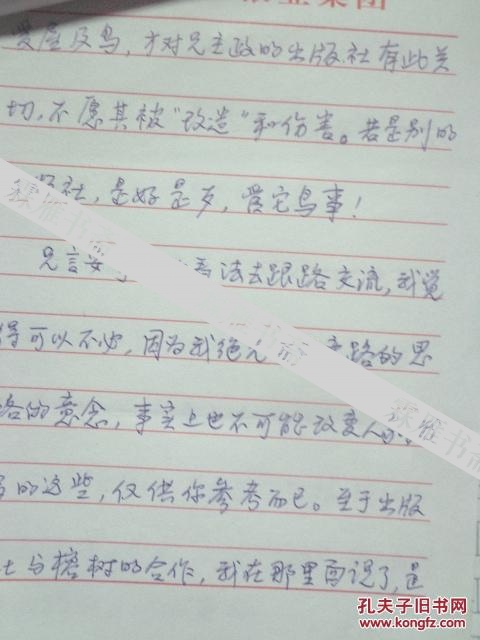 集团
爱屋及乌，才对兄主政的出版社有此关
切，不愿其被“改造”和伤害。若是别的
社，是好是歹，管它鸟事！
兄言要 看法去跟路交流，我觉
得可以不必，因为我绝 路的思
路的意念，事实上也不可能改变人
的这些，仅供你参考而已。至于出版
社与榕树的合作，我在那里面说了，是
雅书
孔夫子旧书网
www.kongfz.com